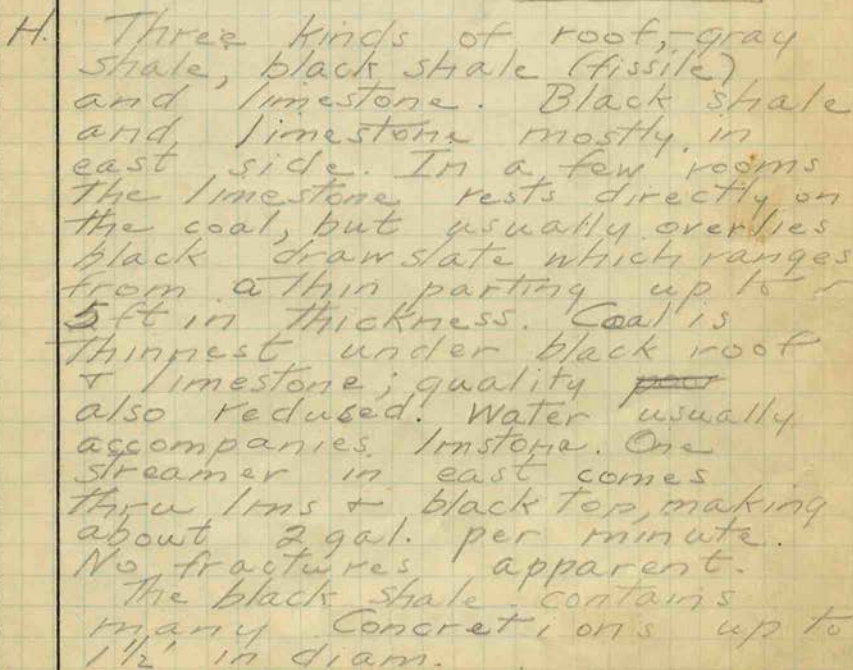 H. Three kinds of roof,-gray
shale, black shale (fissile)
and limestone. Black shale
and limestone mostly in
east side. In a few rooms
the limestone rests directly on
the coal, but usually overlies
black draw slate which ranges
from a thin parting up to
5 ft in thickness. Coal is
thinnest under black roof
+ limestone; quality poor
also redused. Water usually
accompanies lmstone. One
streamer in east comes
thru lms + black top, making
about 2 gal. per minute.
No fractures apparent.
The black shale contains
many concretions up to
1½' in diam.